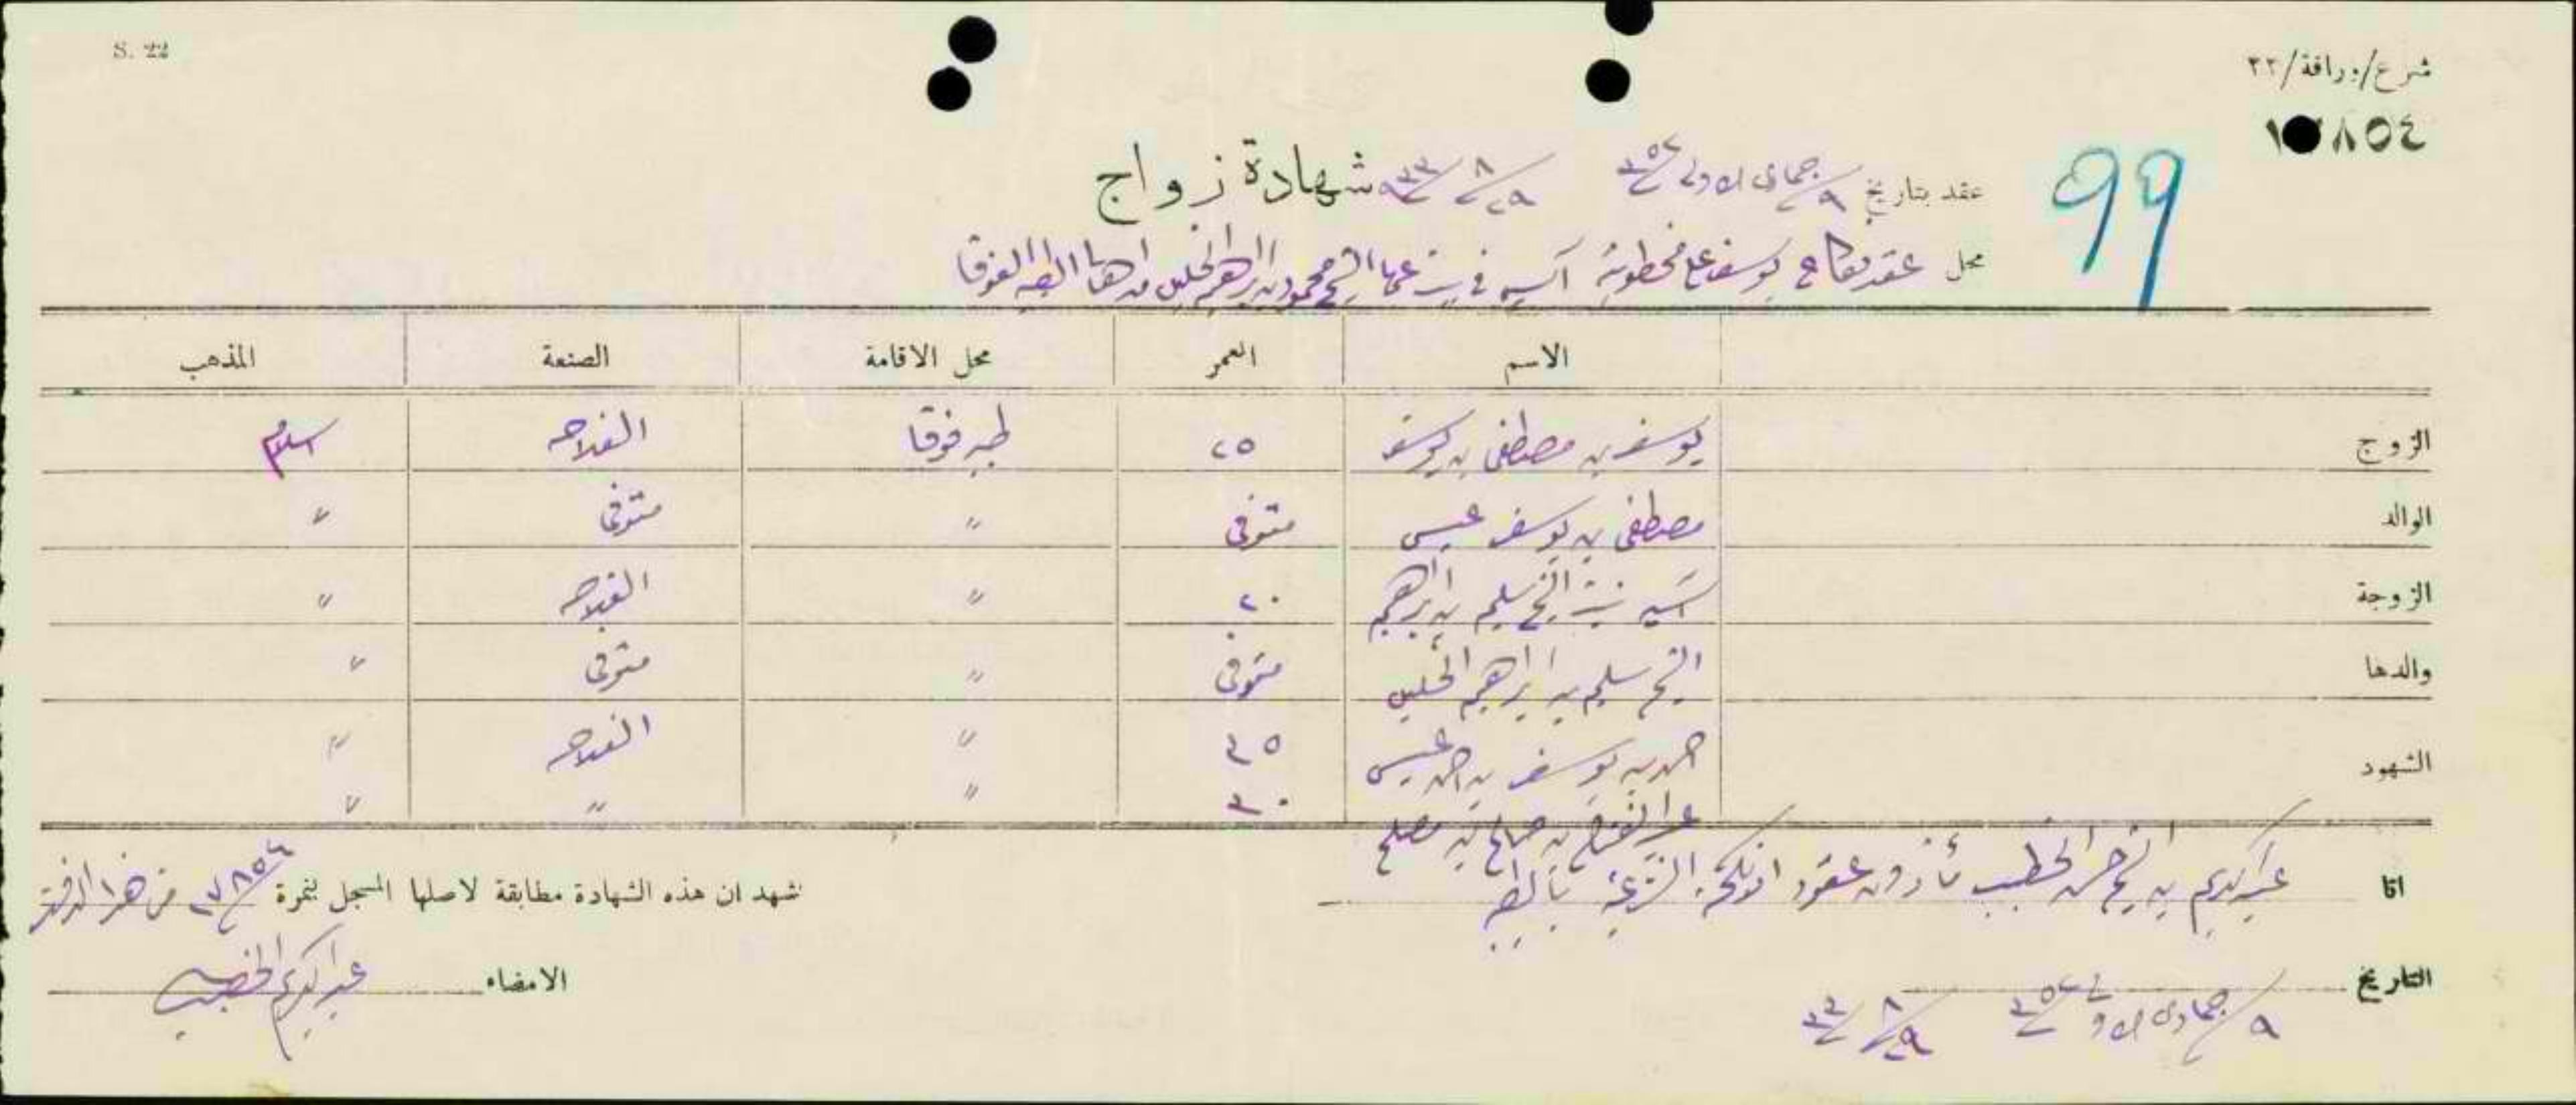 S. 22
شرع/وراقة/٢٢
٨٥٤
99
عقد بتاريخ ٩ جمادى الاولى ٣٥٢ ٢٩/٨/٩٣٣
شهادة زواج
محل عقد نكاح يوسف على مخطوبته آسيه في بيت عمها الشيخ محمود بن ابراهيم الخليل من اهالي الطيبه الفوقا
الاسم العمر محل الاقامة الصنعة المذهب
الزوج يوسف بن مصطفى بن يوسف ٢٥ طيبه فوقا الفلاحه اسلام
الوالد مصطفى بن يوسف عيسى متوفى " متوفى "
الزوجة آسيه بنت الشيخ سليم بن ابراهيم ٢٠ " الفلاحه "
والدها الشيخ سليم بن ابراهيم الخليل متوفى " متوفى "
الشهود احمد بن يوسف بن احمد عيسى ٤٥ " الفلاحه "
عبد الفتاح بن صالح بن مصلح ٣٠ " " "
انا عبد الكريم بن الشيخ حسن الخطيب مأذون عقود الانكحة الشرعية بالطيبه
شهد ان هذه الشهادة مطابقة لاصلها المسجل بنمرة ١٧٨٥٤ من هذا الدفتر
التاريخ ٩ جمادى الاولى ٣٥٢ ٢٩/٨/٣٣
الامضاء عبد الكريم الخطيب